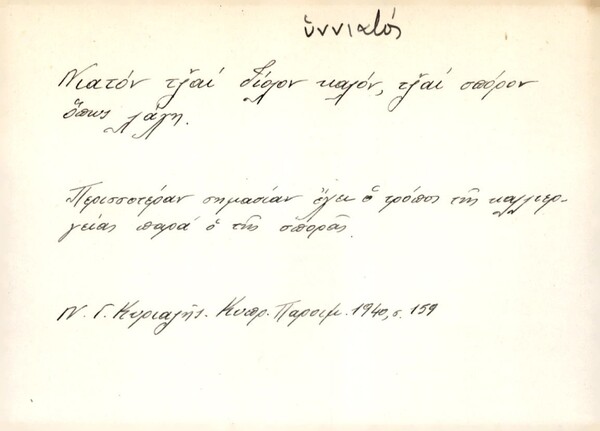 ὑννιατός
Νιατόν τζ̌αί δίβολον καλόν, τζ̌αί σπόρον
ὅπως λάχῃ.
Περισσοτέραν σημασίαν ἔχει ὁ τρόπος τῆς καλλιερ-
γείας παρά ὁ τῆς σπορᾶς.
Ν. Γ. Κυριαζῆς. Κυπρ. Παροιμ. 1940, σ. 159